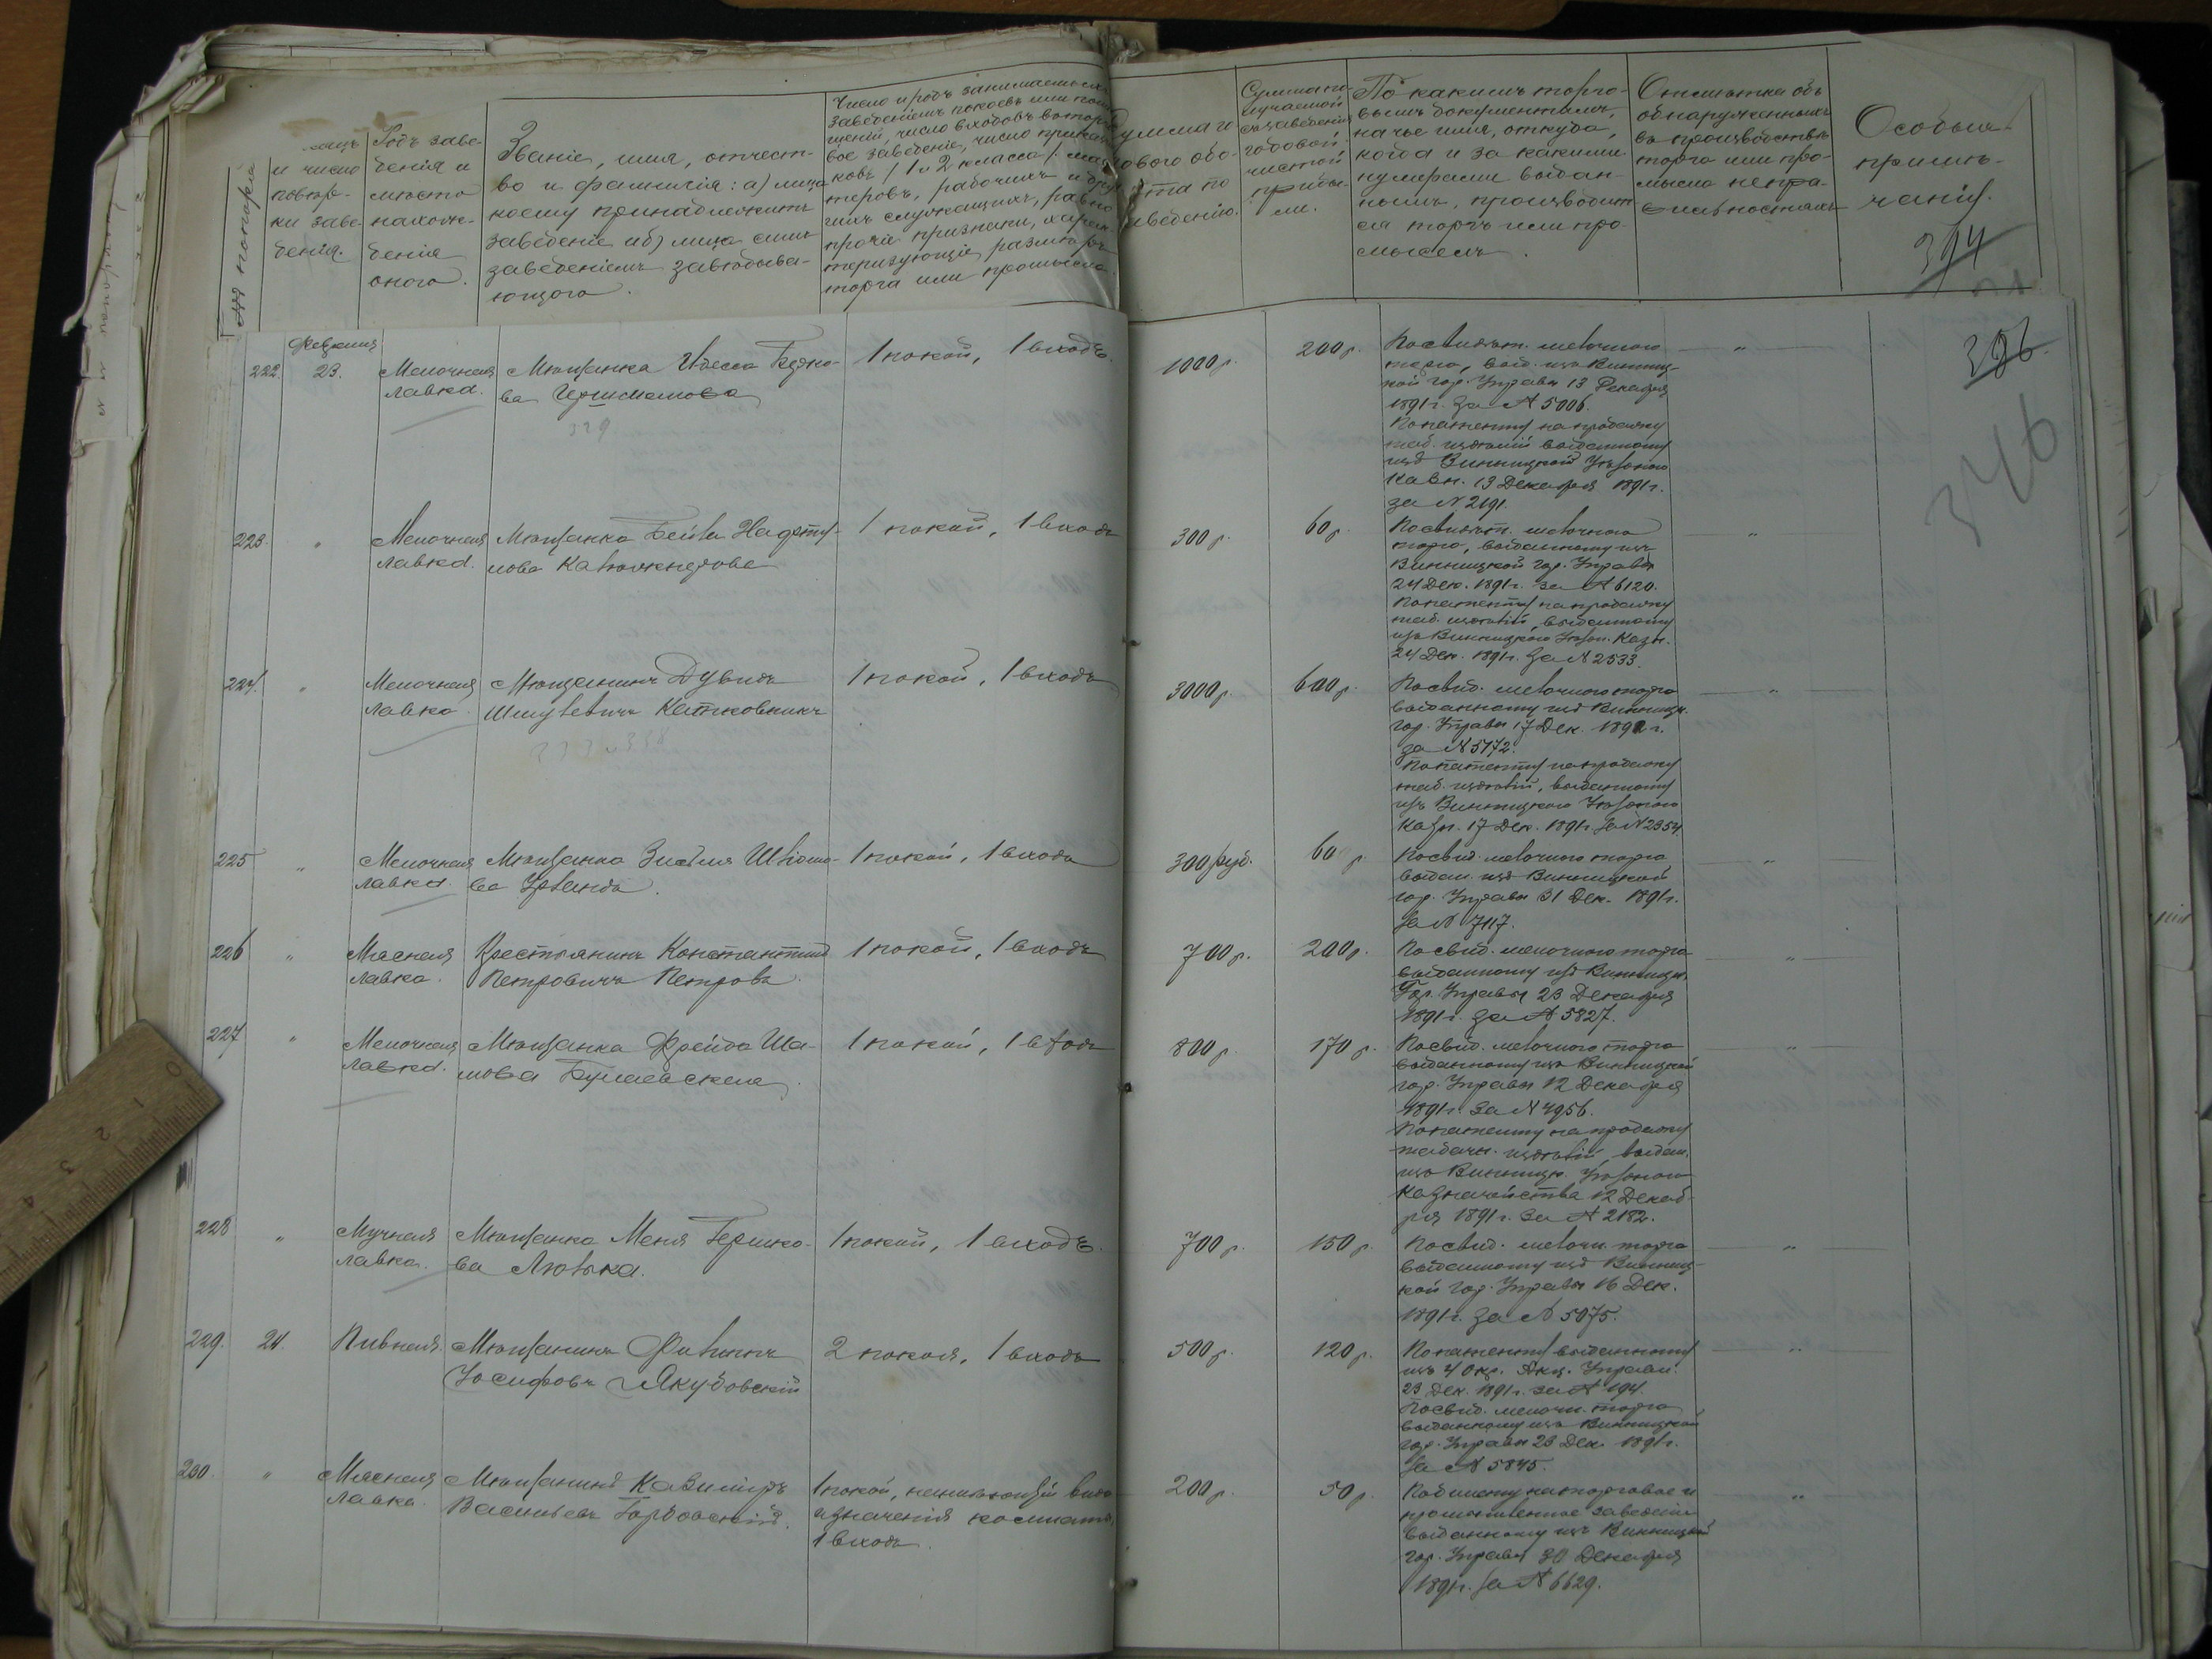 №№ по порядку
и число
повѣр-
ки заве-
денія.
Родъ заве-
денія и
мѣсто
нахож-
денія
онаго.
Званіе, имя, отчест-
во и фамилія: а) лица
коему принадлежитъ
заведеніе и б) лица симъ
заведеніемъ завѣдыва-
ющаго.
Число и родъ занимаемыхъ
заведеніемъ покоевъ или
щеній, число входовъ въ
вое заведеніе, число
ковъ 1 и 2 класса,
теровъ, рабочихъ и
гихъ служащихъ, равно
прочіе признаки,
теризующіе размѣръ
торга или промысла.
Сумма
оваго обо-
та по
аведенію.
Сумма по-
лучаемой
съ заведенія
годовой
чистой
прибы-
ли.
По какимъ торго-
вымъ документамъ,
на чье имя, откуда,
когда и за какими
нумерами выдан-
нымъ, производит-
ся торгъ или про-
мыселъ.
Отмѣтка объ
обнаруженныхъ
въ производствѣ
торга или про-
мысла непра-
вильностяхъ
Особыя
примѣ-
чанія.
394
396
346
222.
Февраля
23.
Мелочная
лавка.
Мѣщанка
ва
329
1 покой, 1 входъ.
1000 р.
200 р.
По свидѣт. мелочного
торга, выд. изъ Винниц-
кой гор. Управы 13 Декабря
1891 г. за № 5006.
По патенту на продажу
таб. издѣлій выданному
изъ Винницкой Уѣзднаго
Казн. 13 Декабря 1891 г.
за № 2191.
223.
"
Мелочная
лавка.
Мѣщанка Бейла
1 покой, 1 входъ
300 р.
60 р.
По свидѣт. мелочного
торга, выданному изъ
Винницкой гор. Управы
24 Дек. 1891 г. за № 6120.
По патенту на продажу
таб. издѣлій, выданному
изъ Винницкаго Уѣзн. Казн.
24 Дек. 1891 г. за № 2533.
224.
"
Мелочная
лавка
Мѣщанинъ Дувидъ
Шмулевичъ
1 покой, 1 входъ
3000 р.
600 р.
По свид. мелочного торга
выданному изъ Винницк.
гор. Управы 17 Дек. 1891 г.
за № 5172.
По патенту на продажу
таб. издѣлій, выданному
изъ Винницкаго Уѣзднаго
Казн. 17 Дек. 1891 г. за № 2354.
225
"
Мелочная
лавка.
Мѣщанка Зисля
ва
1 покой, 1 входъ
300 руб.
60 р.
По свид. мелочного торга
выдан. изъ Винницкой
гор. Управы 31 Дек. 1891 г.
за № 7117.
226
"
Мясная
лавка.
Крестьянинъ Константинъ
Петровичъ Петровъ
1 покой, 1 входъ
700 р.
200 р.
По свид. мелочного торга
выданному изъ Винницк.
Гор. Управы 23 Декабря
1891 г. за № 5827.
227
"
Мелочная
лавка.
Мѣщанка Фрейда Ша-
мова
1 покой, 1 входъ
800 р.
170 р.
По свид. мелочного торга
выданному изъ Винницкой
гор. Управы 12 Декабря
1891 г. за № 4956.
По патенту на продажу
табачн. издѣлій, выдан.
изъ Винницк. Уѣзднаго
Казначейства 12 Декаб-
ря 1891 г. за № 2182.
228
"
Мучная
лавка.
Мѣщанка Меня Гершко-
ва
1 покой, 1 входъ.
700 р.
150 р.
По свид. мелочн. торга
выданному изъ Винниц-
кой гор. Управы 16 Дек.
1891 г. за № 5075.
229.
24.
Пивная.
Мѣщанинъ
Іосифовъ Якубовскій
2 покоя, 1 входъ
500 р.
120 р.
По патенту выданному
изъ 4 Окр. Акц. Управл.
23 Дек. 1891 г. за № 194.
По свид. мелочн. торга
выданному изъ Винницкой
гор. Управы 23 Дек. 1891 г.
за № 5845.
230.
"
Мясная
лавка.
Мѣщанинъ Казимиръ
Васильевъ
1 покой, неимѣющій вида
и значенія комнаты,
1 входъ.
200 р.
50 р.
По билету на торговое и
промышленное заведеніе
выданному изъ Винницкой
гор. Управы 30 Декабря
1891 г. за № 6629.